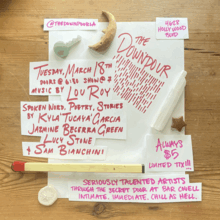 @THEDOWNDOURIA
THE DOWNDOUR
TUESDAY, MARCH 18TH
DOORS @ 8:30 SHOW @ 9
MUSIC BY LOU ROY
SPOKEN WORD, POETRY, STORIES
BY KYLA TUCAYA GARCIA
JASMINE BECERRA GREEN
LUCY STONE
& SAM BIANCHINI
ALWAYS
$5
SERIOUSLY TALENTED ARTISTS
THROUGH THE SECRET DOOR AT BAR
INTIMATE. IMMEDIATE. CHILL AS HELL.